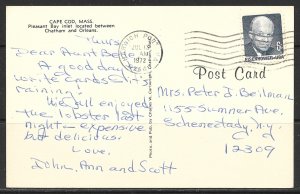 CAPE COD, MASS.
Pleasant Bay inlet located between
Chatham and Orleans.
Thurs
Dear Aunt Belle,
A good day
write cards - it's
raining!
We all enjoyed
the lobster last
night - expensive
but delicious.
Love,
John, Ann and Scott
JUL 13
AM
1972
EISENHOWER·USA
Post Card
Mrs. Peter J. Beilman
1155 Sumner Ave
Schenectady, N.Y.
12309